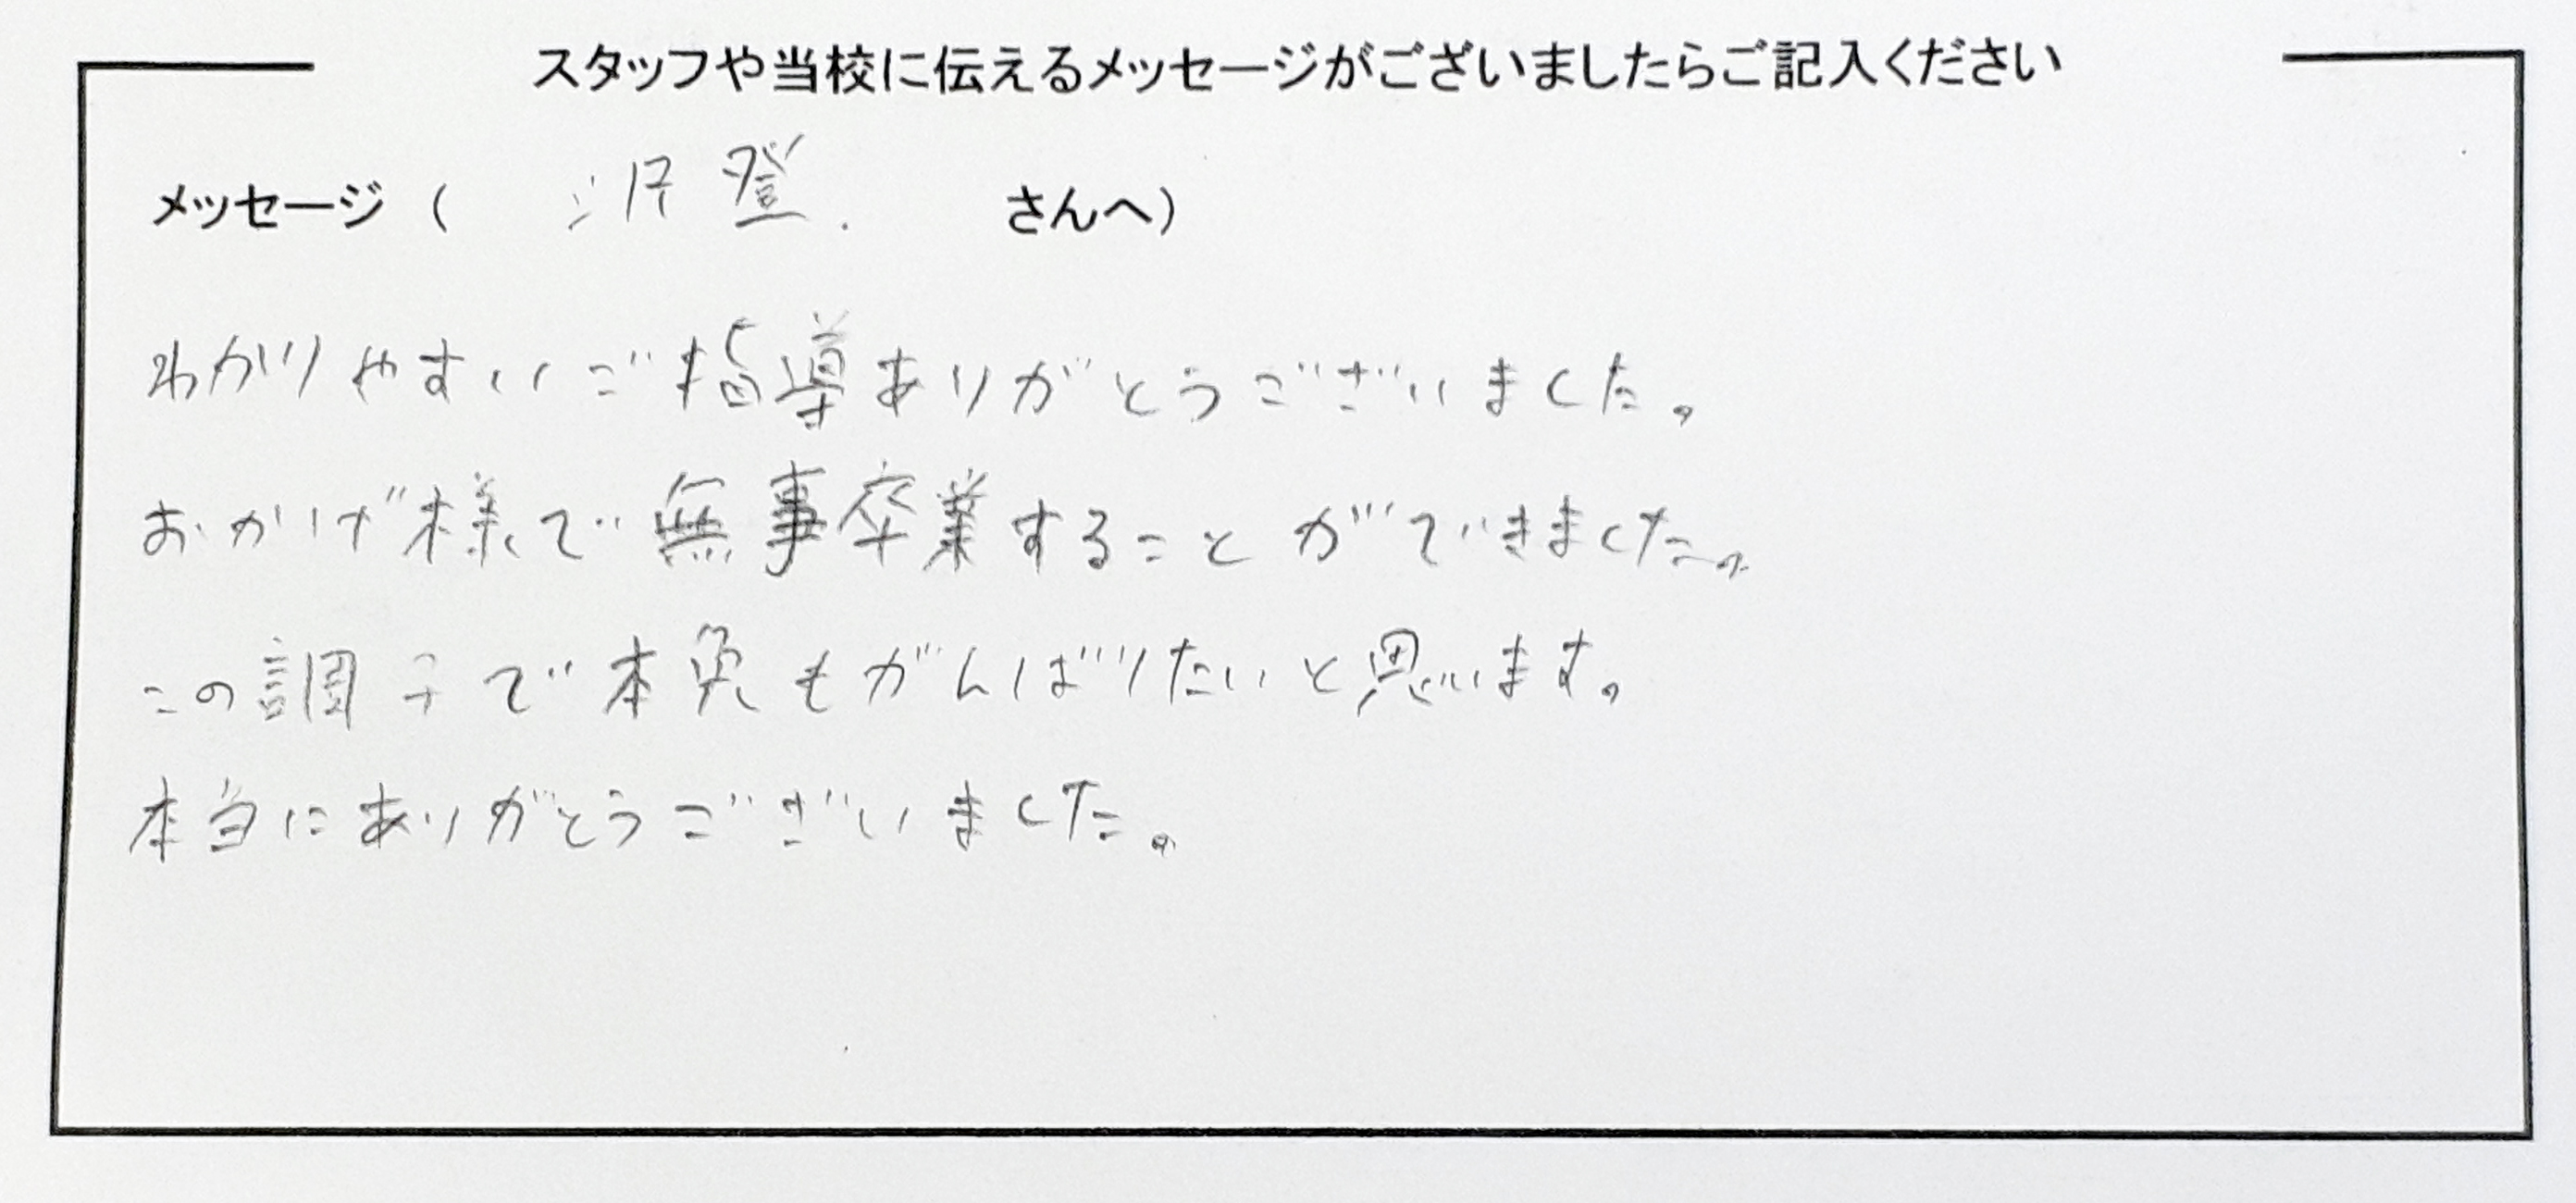 スタッフや当校に伝えるメッセージがございましたらご記入ください
メッセージ ( 沢登. さんへ)
わかりやすいご指導ありがとうございました。
おかげ様で無事卒業することができました。
この調子で本免もがんばりたいと思います。
本当にありがとうございました。